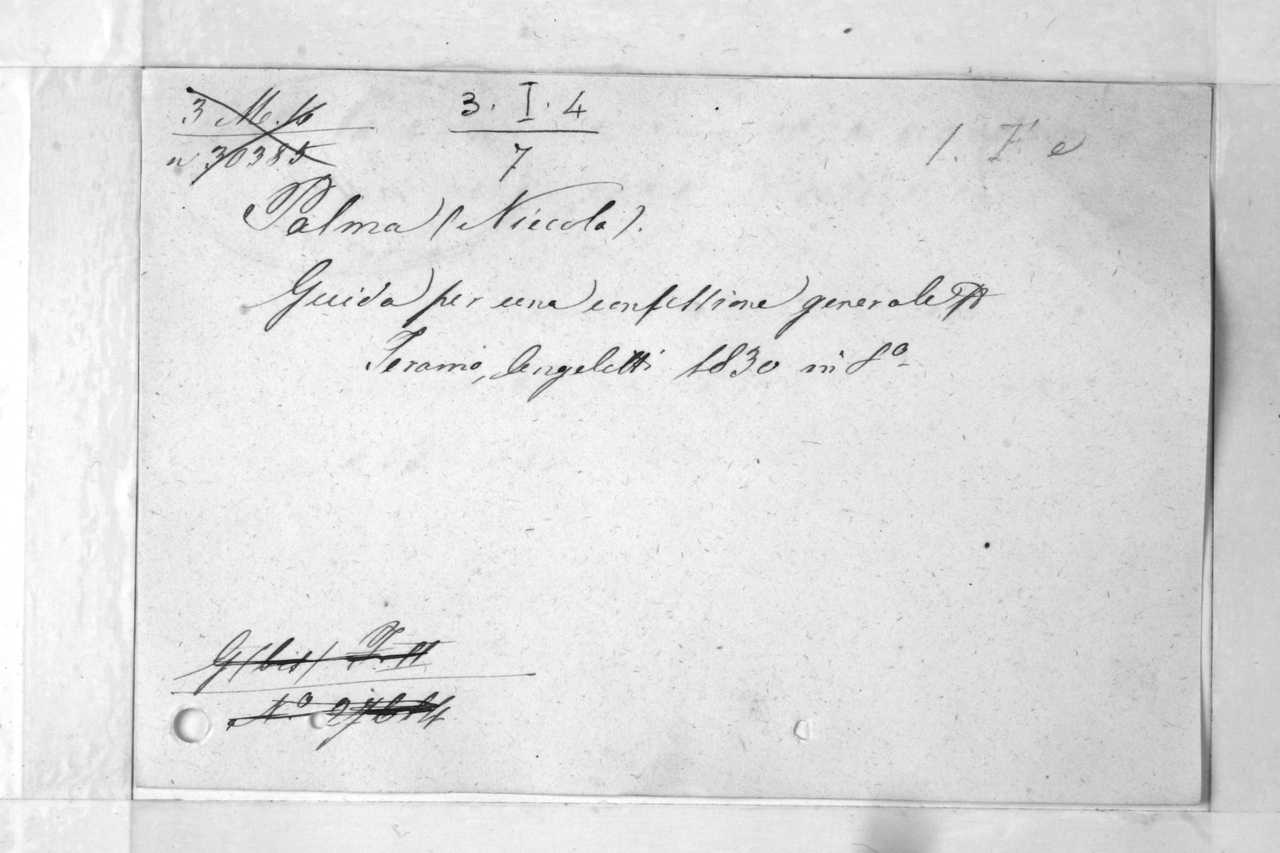 3 M. 16
3. I. 4
n 30385
7
1. F e
Palma (Niccola).
Guida per una confessione generale
Teramo, Angeletti 1830 in 8º
G (bis)
Nº